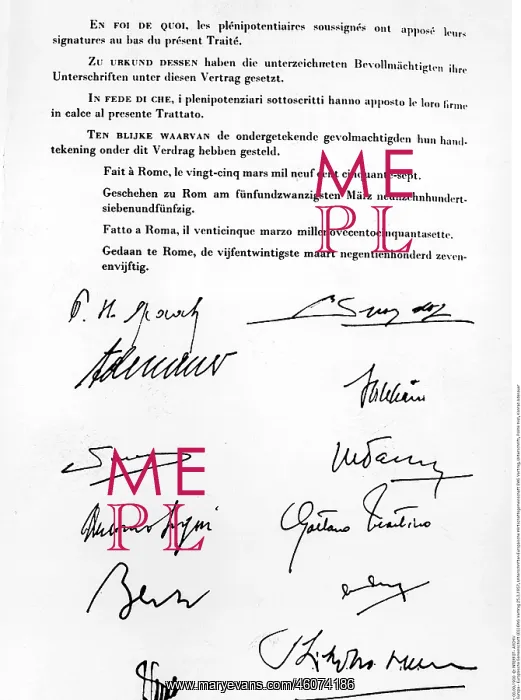 EN FOI DE QUOI, les plénipotentiaires soussignés ont apposé leurs
signatures au bas du présent Traité.
ZU URKUND DESSEN haben die unterzeichneten Bevollmächtigten ihre
Unterschriften unter diesen Vertrag gesetzt.
IN FEDE DI CHE, i plenipotenziari sottoscritti hanno apposto le loro firme
in calce al presente Trattato.
TEN BLIJKE WAARVAN de ondergetekende gevolmachtigden hun hand-
tekening onder dit Verdrag hebben gesteld.
Fait à Rome, le vingt-cinq mars mil neuf cent cinquante-sept.
Geschehen zu Rom am fünfundzwanzigsten März neunzehnhundert-
siebenundfünfzig.
Fatto a Roma, il venticinque marzo millenovecentocinquantasette.
Gedaan te Rome, de vijfentwintigste maart negentienhonderd zeven-
envijftig.
ME
PL
P. H. Spaak
Adenauer
ME
PL
Antonio Segni
Gaetano Martino
Bech
www.maryevans.com/46074186